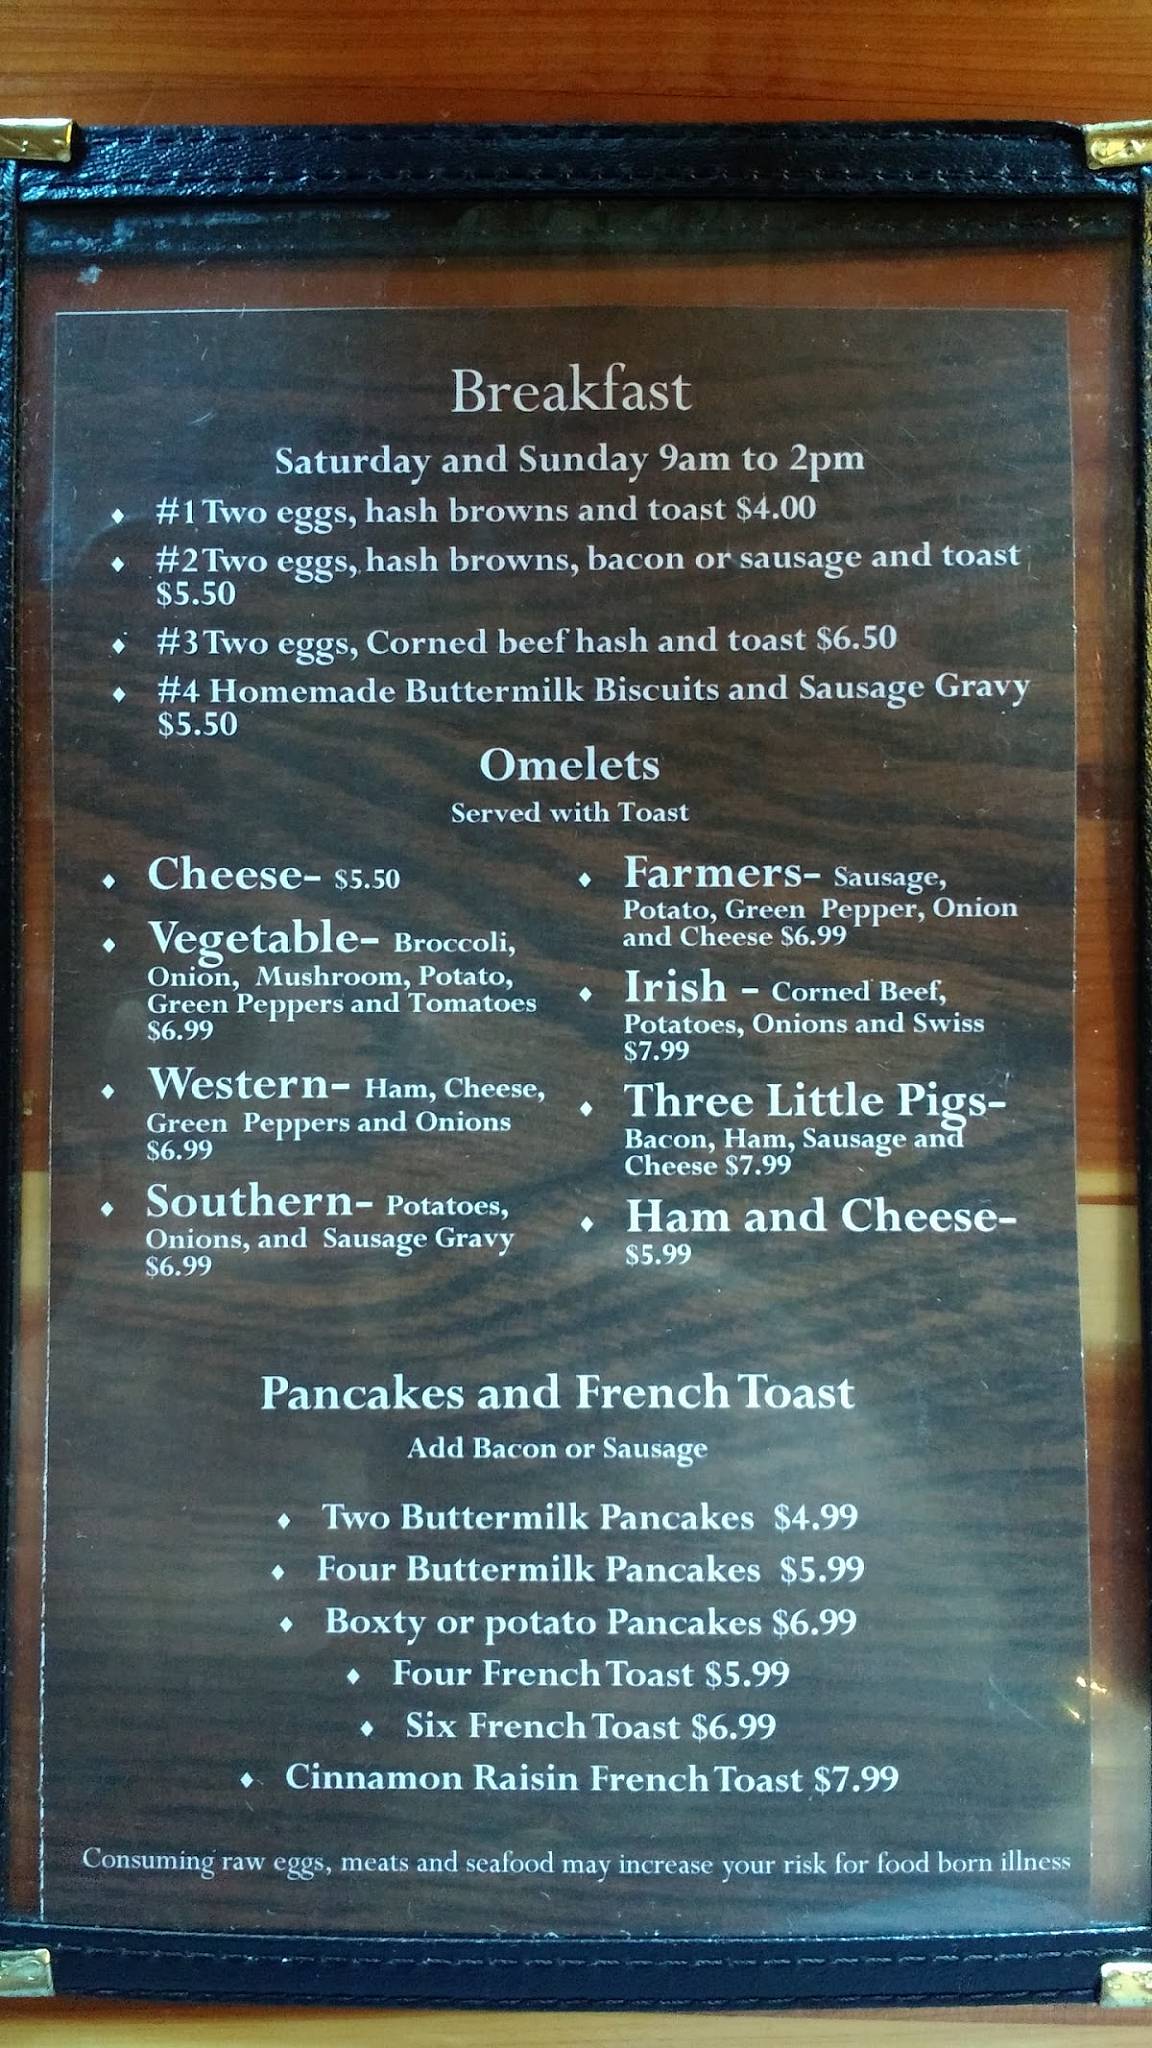 Breakfast
Saturday and Sunday 9am to 2pm
#1 Two eggs, hash browns and toast $4.00
#2 Two eggs, hash browns, bacon or sausage and toast
$5.50
#3 Two eggs, Corned beef hash and toast $6.50
#4 Homemade Buttermilk Biscuits and Sausage Gravy
$5.50
Omelets
Served with Toast
Cheese- $5.50
Vegetable- Broccoli,
Onion, Mushroom, Potato,
Green Peppers and Tomatoes
$6.99
Western- Ham, Cheese,
Green Peppers and Onions
$6.99
Southern- Potatoes,
Onions, and Sausage Gravy
$6.99
Farmers- Sausage,
Potato, Green Pepper, Onion
and Cheese $6.99
Irish - Corned Beef,
Potatoes, Onions and Swiss
$7.99
Three Little Pigs-
Bacon, Ham, Sausage and
Cheese $7.99
Ham and Cheese-
$5.99
Pancakes and French Toast
Add Bacon or Sausage
Two Buttermilk Pancakes $4.99
Four Buttermilk Pancakes $5.99
Boxty or potato Pancakes $6.99
Four French Toast $5.99
Six French Toast $6.99
Cinnamon Raisin French Toast $7.99
Consuming raw eggs, meats and seafood may increase your risk for food born illness